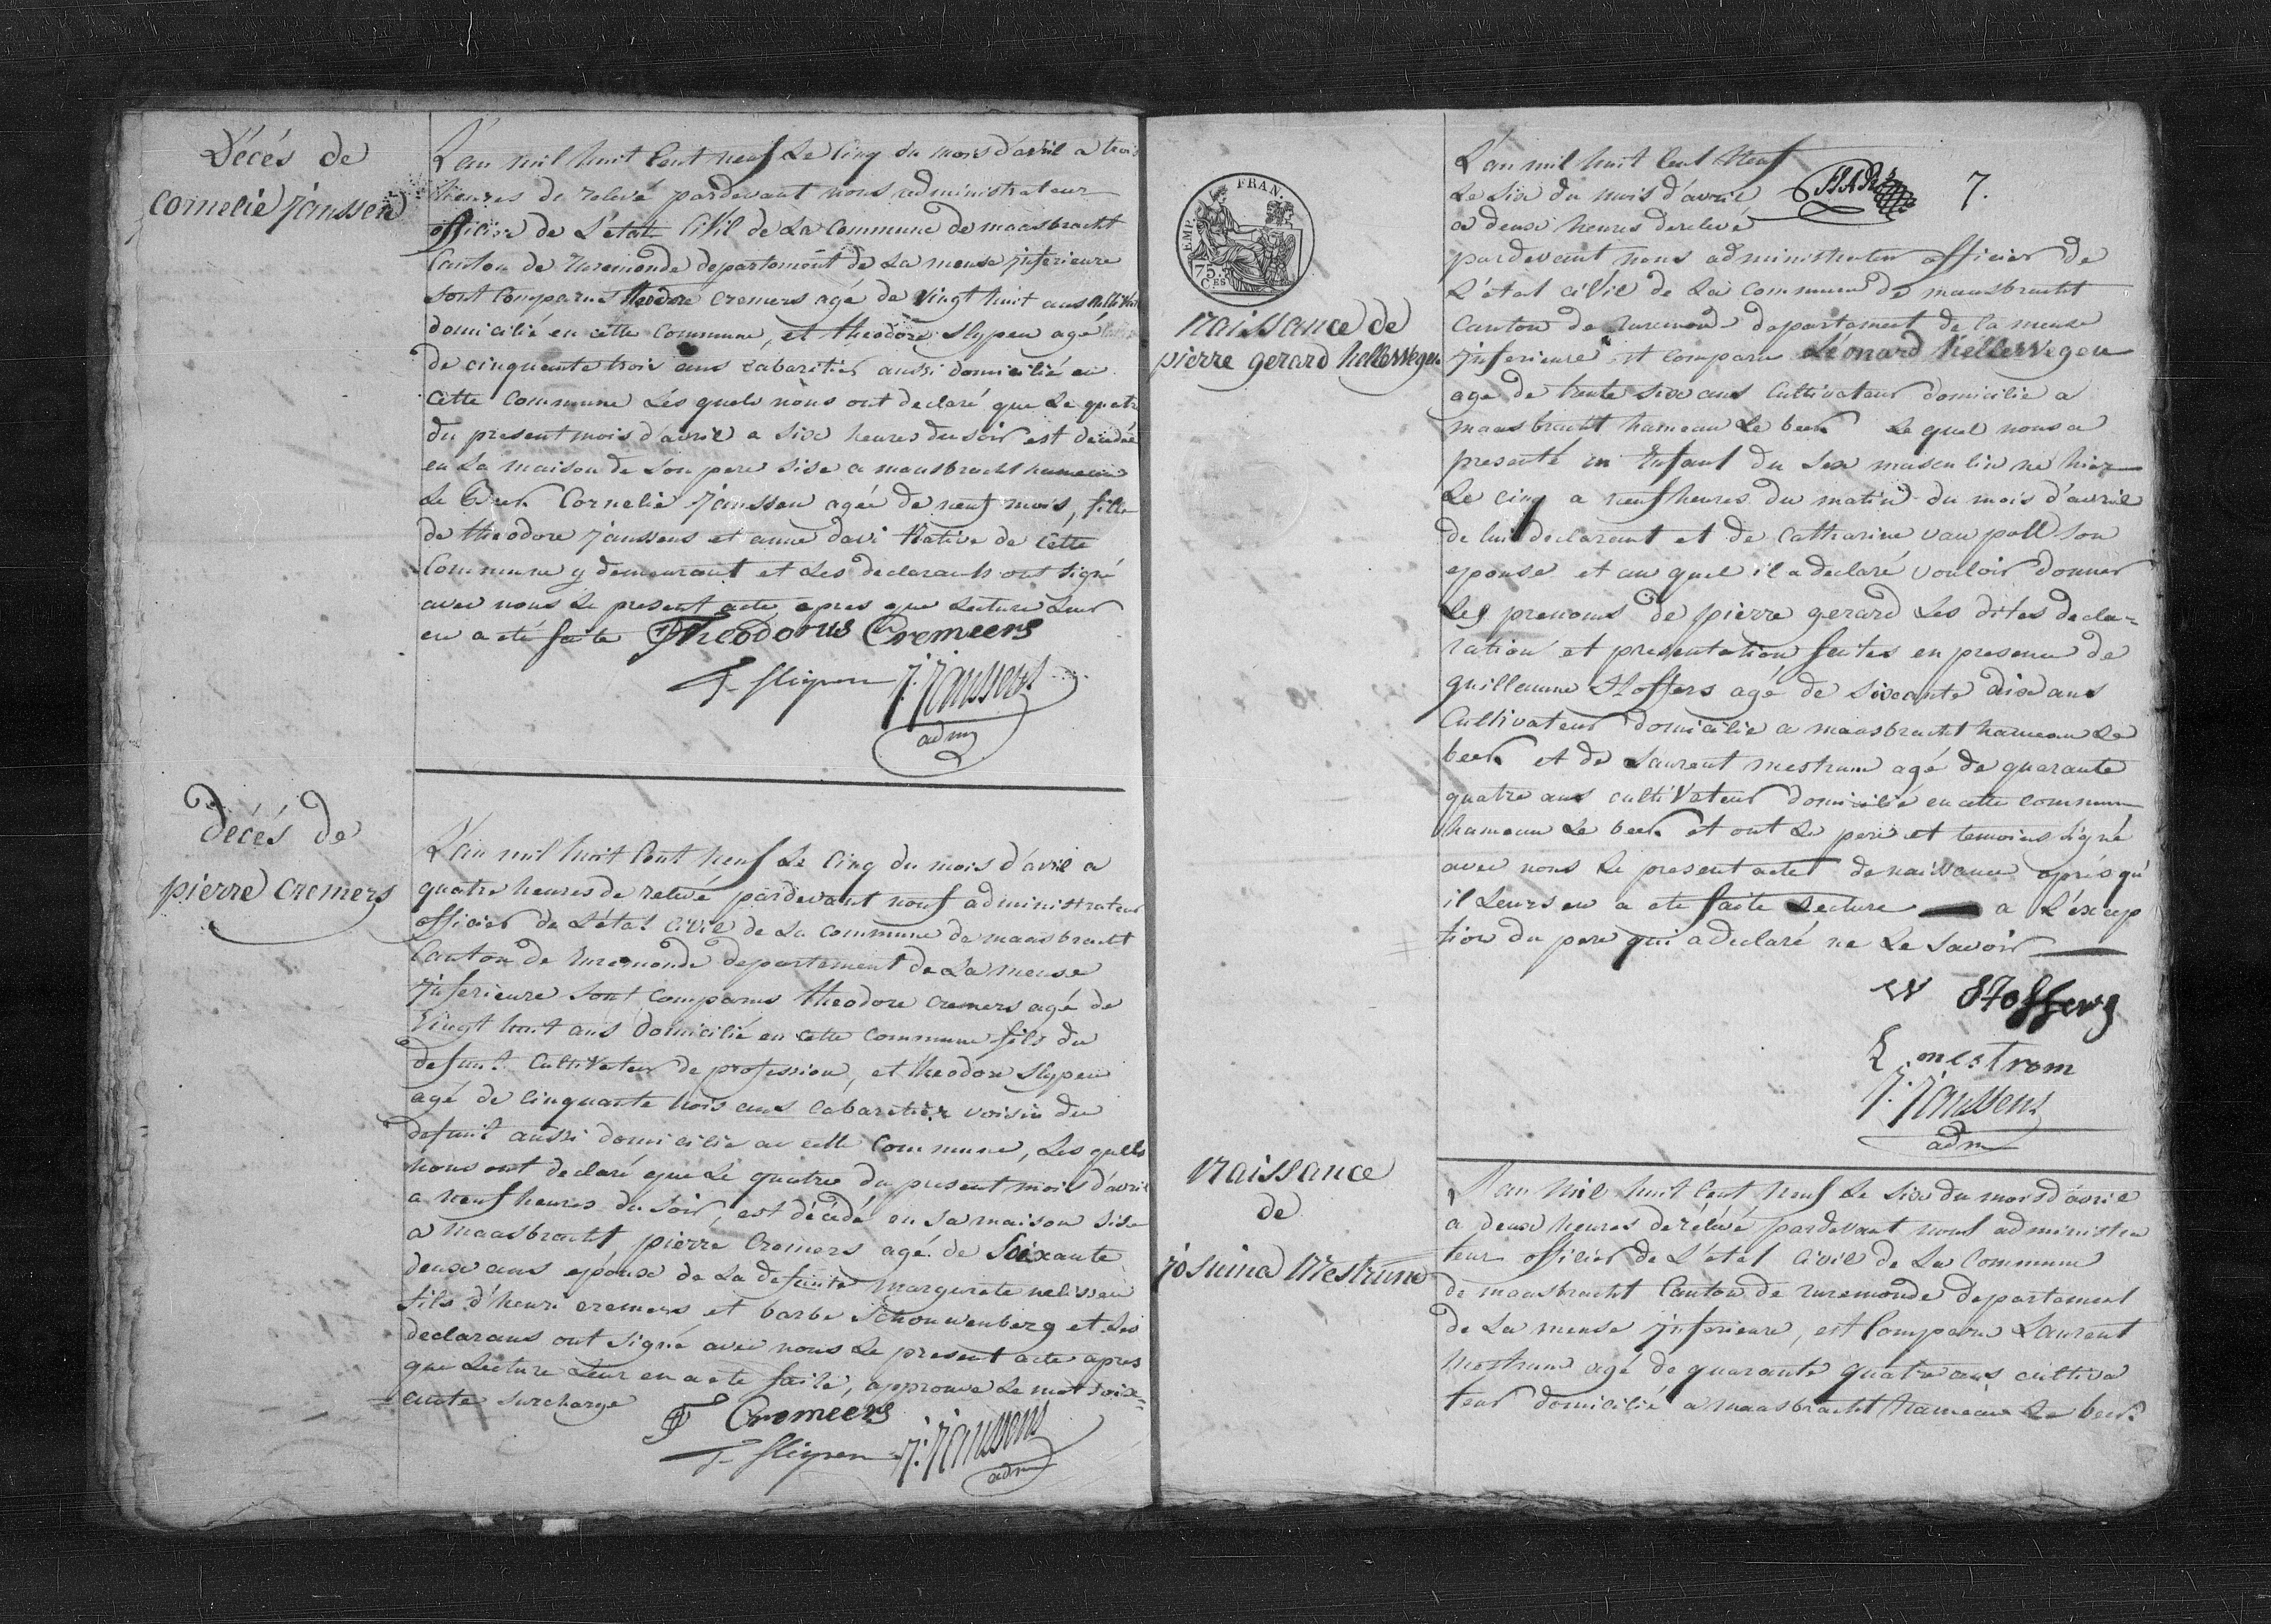 Décés de
Cornelie Janssen
L'an mil huit Cent neuf Le Cinq du mois d'avril a trois
heures de relevé pardevant nous administrateur
officier de L'état Civil de La Commune de maasbracht
Canton de Ruremonde departement de La meuse jnferieure
sont Comparus theodore cremers agé de Vingt huit ans Cultivat
domicilié en cette Commune, et theodore Slypen agé
de cinquante trois ans cabaretier aussi domicilié en
Cette Commune Les quels nous ont declaré que Le quatre
du present mois d'avril a six heures du soir est decedée
en La maison de Son pere sise a maasbracht hameau
Le Beek Cornelie Janssen agée de neuf mois, fille
de theodore Janssens et anne davi Native de Cette
Commune y demeurant et Les declarants ont signé
avec nous Le present acte apres que Lecture Leur
en a eté faite Theodorus Cremeers
T. Sligpen J. Janssens
adm
décés de
pierre cremers
L'an mil huit Cent neuf Le Cinq du mois d'avril a
quatre heures de relevé pardevant nous administrateur
officier de L'état Civil de La Commune de maasbracht
Canton de Ruremonde departement de La meuse
jnferieure Sont Comparus theodore cremers agé de
Vingt huit ans domicilié en cette Commune fils du
defunt Cultivateur de profession, et theodore Slypen
agé de cinquante trois ans Cabaretier voisin du
defunt aussi domicilié en cette Commune, Les quells
nous ont declaré que Le quatre du present mois d'avril
a neuf heures du Soir, est décedé en Sa maison Sise
a maasbracht pierre Cremers agé de Soixante
deux ans epoux de La defunte Margurete nelissen
fils d'henri cremers et barbe Schouwenberg et Les
declarans ont Signé avec nous Le present acte apres
que Lecture Leur en a eté faite, approuvé Le mot soix=
=ante surchargé
T Cremeers
T. Sligpen J. Janssens
adm
EMP. FRAN.
75.
CES
naissance de
pierre gerard hellewegen
L'an mil huit Cent Neuf
Le Six du mois d'avril 7.
a deux heures de relevé
pardevant nous administrateur officier de
L'état civil de La Commune de maasbracht
Canton de Ruremonde departement de la meuse
jnferieure est Comparu Léonard hellewegen
agé de trente six ans Cultivateur domicilié a
maasbracht hameau Le beek Le quel nous a
presenté un Enfant du Sexe masculin né hier
Le cinq a neuf heures du matin du mois d'avril
de lui declarant et de Catharine van poll son
epouse et au quel il a declaré vouloir donner
Les prenoms de pierre gerard Les dites decla=
ration et presentation faites en presence de
guillaume Stoffers agé de Soixante dix ans
Cultivateur domicilié a maasbracht hameau Le
beek et de Laurent mestrum agé de quarante
quatre ans cultivateur domicilié en cette commune
hameau Le beek et ont Le pere et temoins signé
avec nous Le present acte de naissance aprés qu'
il Leurs en a eté faite Lecture a L'éxcep
tion du pere qui a declaré ne Le Savoir
W Stoffers
L mestrom
J. Janssens
adm
naissance
de
josuina Mestrum
L'an Mil huit Cent neuf Le Six du mois d'avril
a deux heures de rélévé pardevant nous administra
teur officier de L'état Civil de La Commune
de maasbracht Canton de ruremonde departement
de La meuse jnferieure, est Comparu Laurent
Mestrum agé de quarante quatre ans cultiva
teur domicilié a maasbracht hameau Le beek